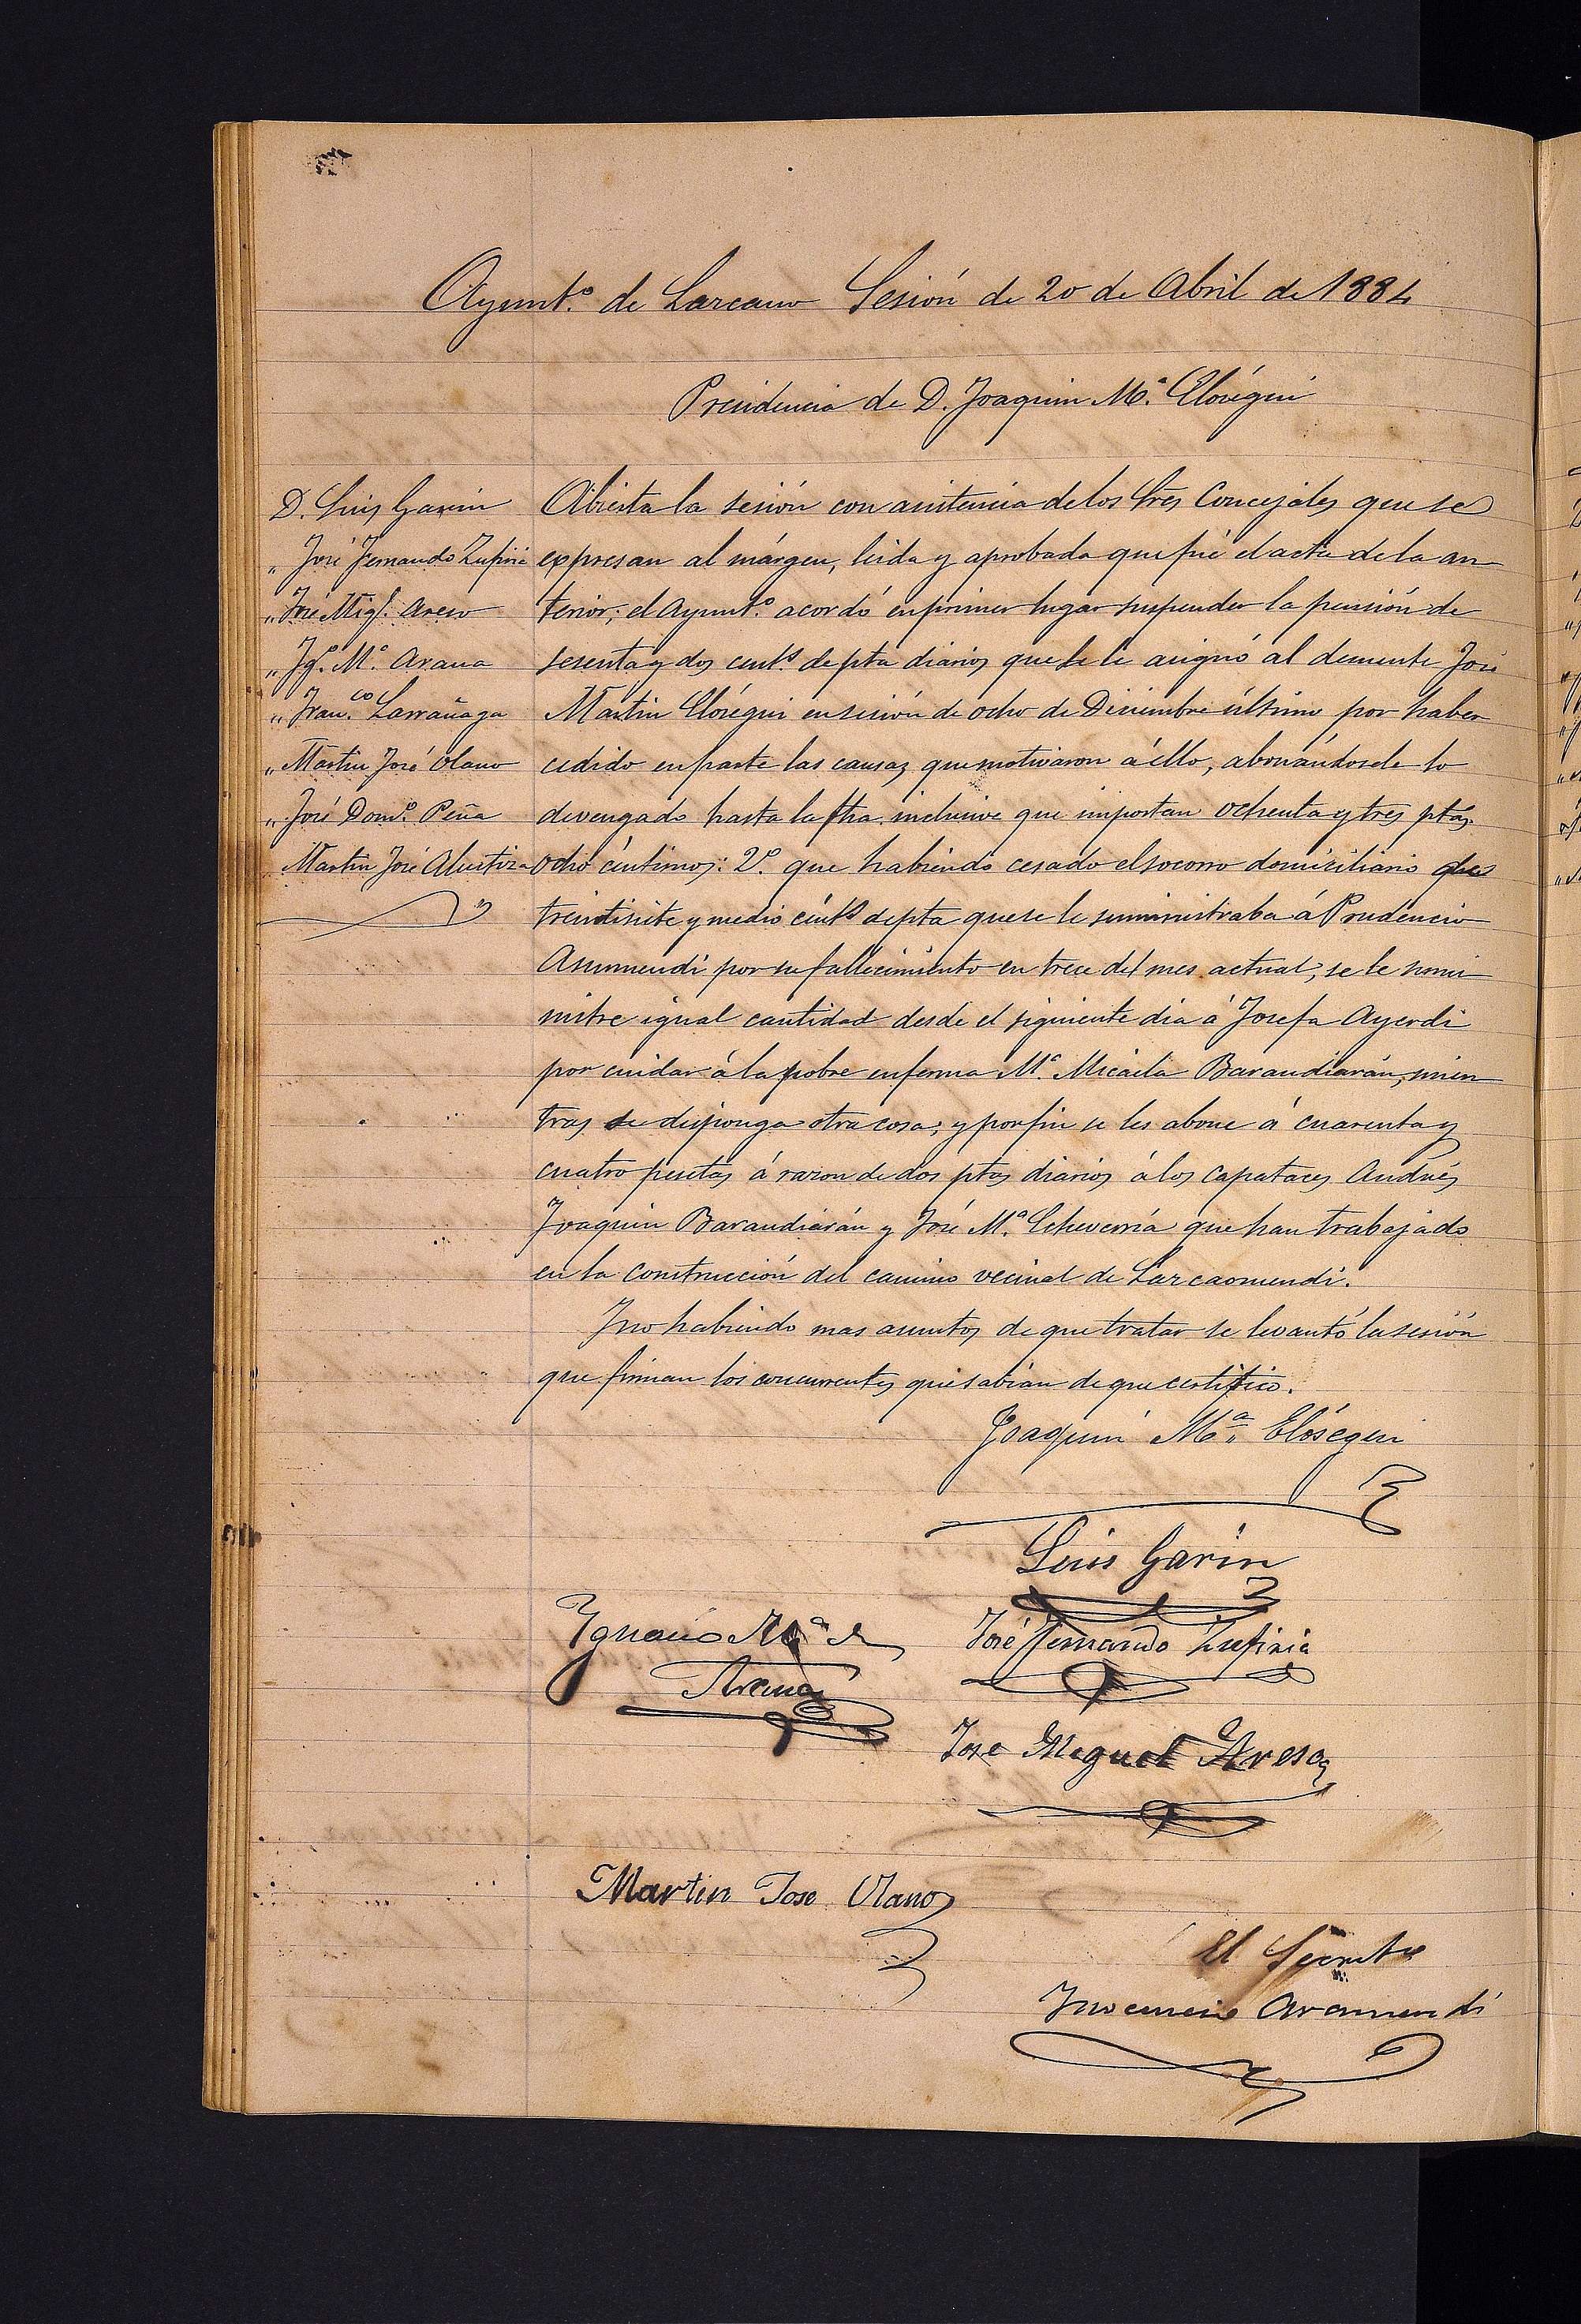 Ayunt.º de Lazcano Sesión de 20 de Abril de 1884
Presidencia de D. Joaquin M.ª Elósegui
D. Luis Garin
„ José Fernando Zufiria
„ José Mig.l Areso
„ Ig.º M.ª Arana
„ Fran.co Larrañaga
„ Martin José Olano
„ José Dom.º Peña
Martin José Alustiza
Abierta la sesión con asistencia de los Sres Concejales que se
expresan al márgen, leida y aprobada que fué el acta de la an
terior; el Ayunt.º acordó en primer lugar suspender la pensión de
sesenta y dos cents de pta diarios que se le asignó al demente José
Martin Elósegui en sesión de ocho de Diciembre último por haber
cedido en parte las causas que motivaron á éllo, abonándosele lo
devengado hasta la fha inclusive que importan ochenta y tres ptas
ocho céntimos: 2.º que habiendo cesado el socorro domiziliario de
treintisiete y medio cénts de pta que se le suministraba á Prudencio
Asurmendi por su fallecimiento en trece del mes actual, se le sumi
nistre igual cantidad desde el siguiente dia á Josefa Ayerdi
por cuidar á la pobre enferma M.ª Micaela Barandiarán, mien
tras se disponga otra cosa; y por fin se les abone á cuarenta y
cuatro pesetas á razon de dos ptas diarios á los capataces Andrés
Joaquin Barandiarán y José M.ª Echeverría que han trabajado
en la construcción del camino vecinal de Lazcaomendi.
Y no habiendo mas asuntos de que tratar se levantó la sesión
que firman los concurrentes que sabian de que certifico.
Joaquin M.ª Elósegui
Luis Garin
Ygnacio M.ª de
Arana
José Fernando Zufiria
Jose Miguel Areso
Martin Jose Olano
El Secretº
Inocencio Aramendi